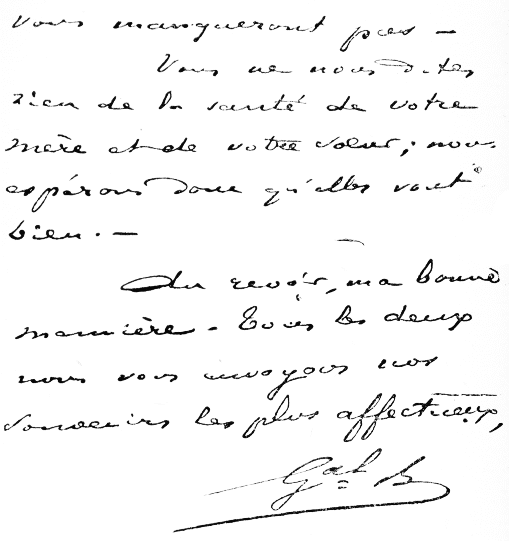 vous manqueront pas —
Vous ne nous dites
rien de la santé de votre
mère et de votre sœur; nous
espérons donc qu'elles vont
bien. —
Au revoir, ma bonne
meunière. Tous les deux
nous vous envoyons nos
souvenirs les plus affectueux,
Gal B